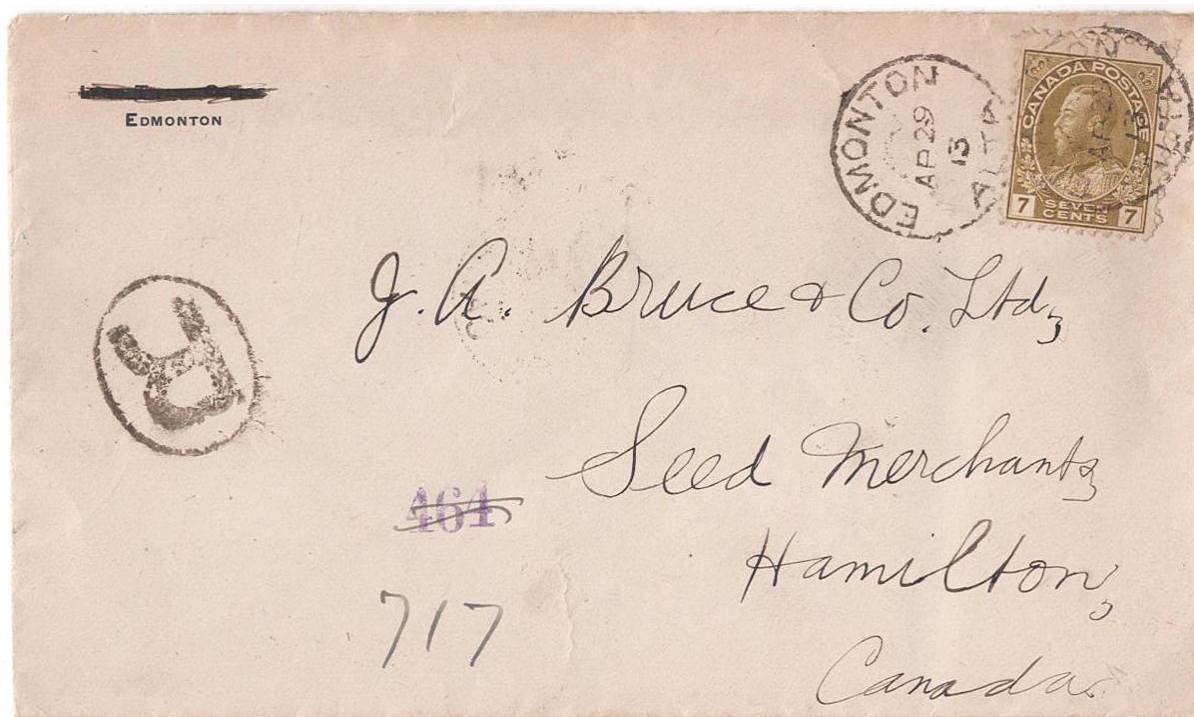 EDMONTON
EDMONTON
AP 29
13
ALTA
CANADA POSTAGE
AP 29
13
7 SEVEN CENTS 7
R
J. A. Bruce & Co. Ltd,
Seed Merchants,
464
Hamilton,
717
Canada.